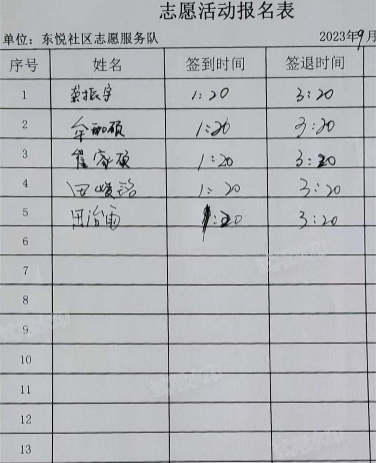 志愿活动报名表
单位：东悦社区志愿服务队 2023年9月
序号 姓名 签到时间 签退时间
1 龚振宇 1:20 3:20
2 1:20 3:20
3 崔家硕 1:20 3:20
4 田峻铭 1:20 3:20
5 田治雨 1:20 3:20
6
7
8
9
10
11
12
13